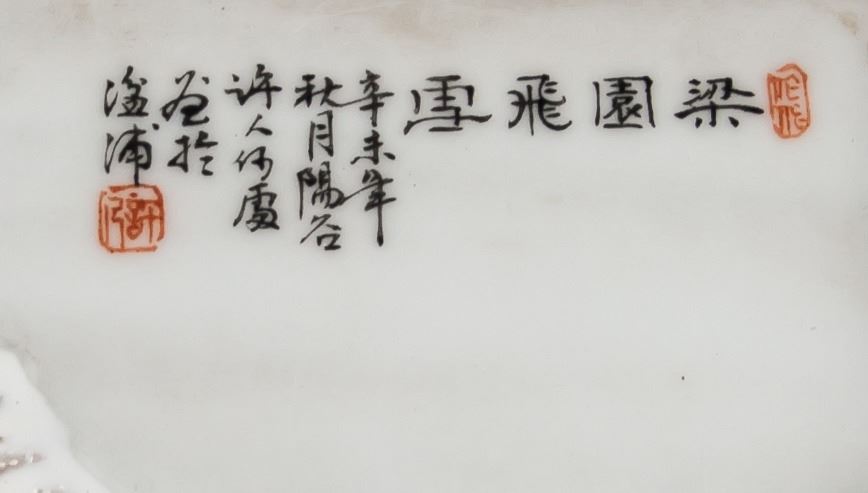 梁園飛雪
辛未年
秋月陽谷
許人何處
畫於
湓浦